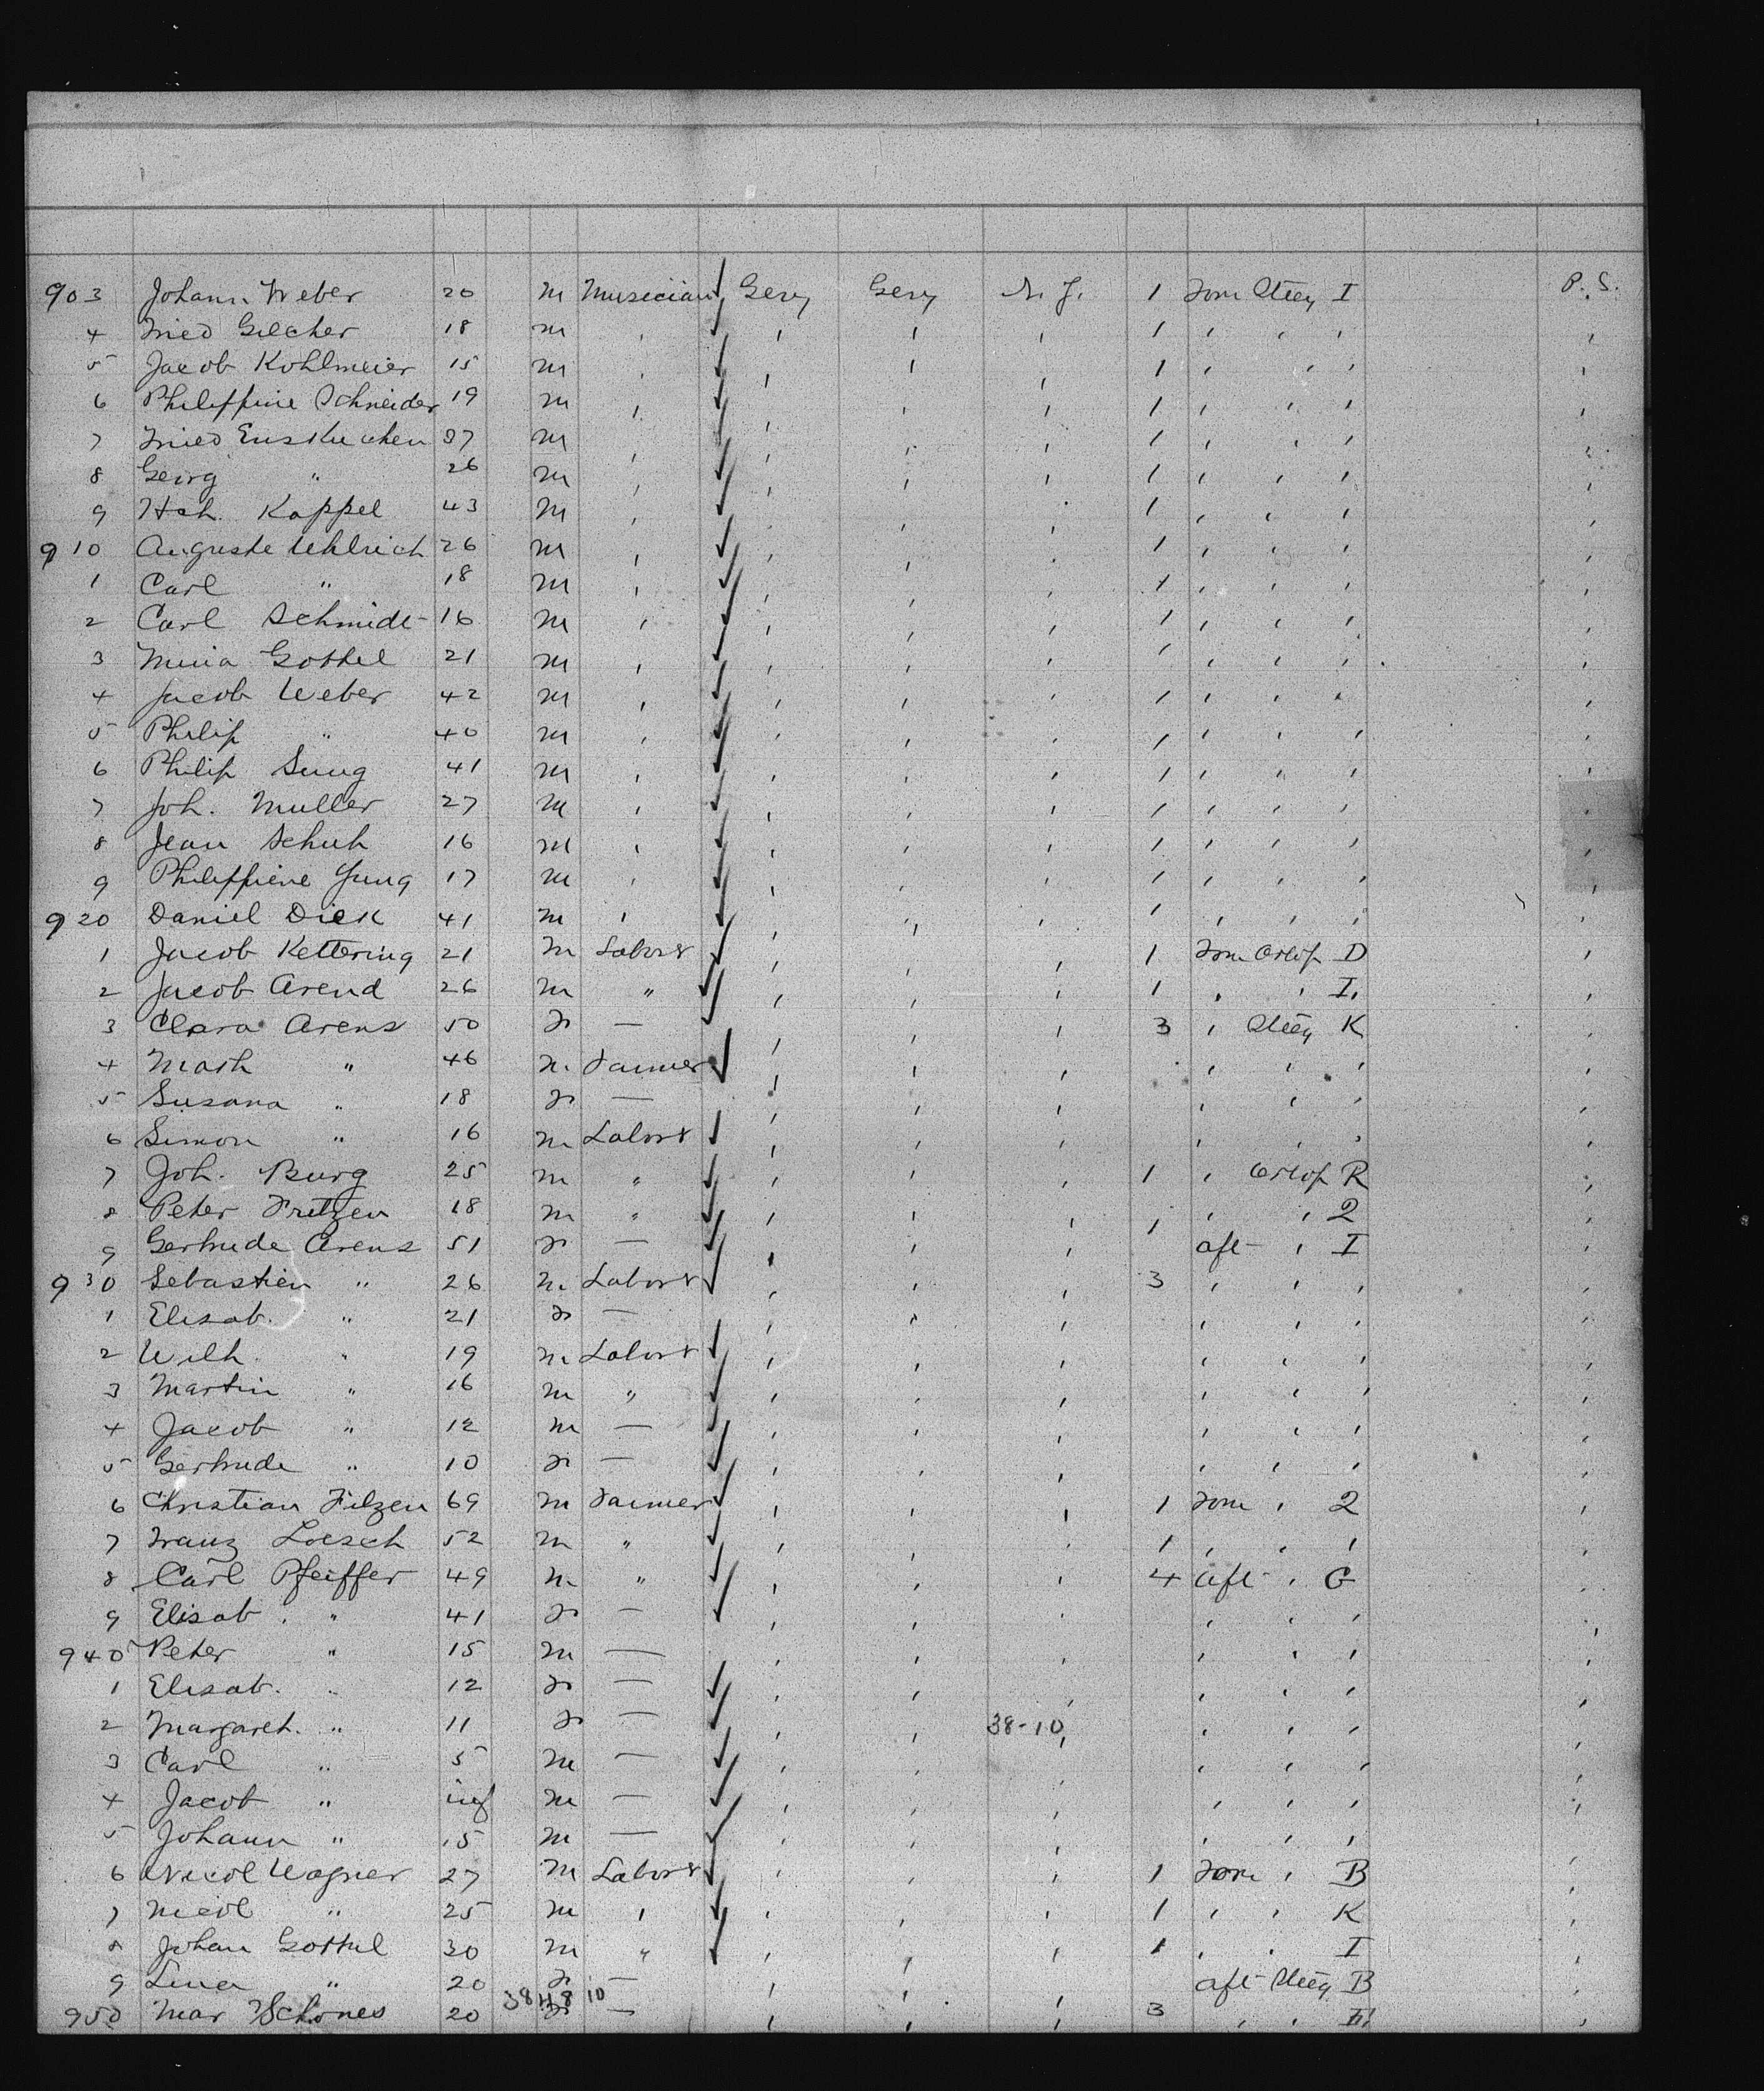 903 Johann Weber 20 m Musician Gery Gery N. Y. 1 Steeg I P. S.
4 Gilcher 18 m ' ' ' ' 1 ' ' ' '
5 Jacob Kohlmeier 15 m ' ' ' ' 1 ' ' ' '
6 Philippine Schneider 19 m ' ' ' ' 1 ' ' ' '
7 37 m ' ' ' ' 1 ' ' ' '
8 Georg " 26 m ' ' ' ' 1 ' ' ' '
9 Hch. Kappel 43 m ' ' ' ' 1 ' ' ' '
910 Auguste Uhlrich 26 m ' ' ' ' 1 ' ' ' '
1 Carl " 18 m ' ' ' ' 1 ' ' ' '
2 Carl Schmidt 16 m ' ' ' ' 1 ' ' ' '
3 Gothel 21 m ' ' ' ' 1 ' ' ' '
4 Jacob Weber 42 m ' ' ' ' 1 ' ' ' '
5 Philip " 40 m ' ' ' ' 1 ' ' ' '
6 Philip 41 m ' ' ' ' 1 ' ' ' '
7 Joh. Muller 27 m ' ' ' ' 1 ' ' ' '
8 Jean Schuh 16 m ' ' ' ' 1 ' ' ' '
9 Philippiene Jung 17 m ' ' ' ' 1 ' ' ' '
920 Daniel Dick 41 m ' ' ' ' 1 ' ' ' '
1 Jacob Kettering 21 m Labor ' ' ' 1 Orlop D '
2 Jacob Arend 26 m " ' ' ' 1 ' ' I. '
3 Clara Arens 50 — ' ' ' 3 ' Steeg K '
4 Math " 46 m Farmer ' ' ' ' ' ' '
5 Susana " 18 — ' ' ' ' ' ' '
6 Simon " 16 m Labor ' ' ' ' ' ' '
7 Joh. Burg 25 m " ' ' ' 1 ' Orlop R '
8 Peter Fritzen 18 m " ' ' ' 1 ' ' 2 '
9 Gertrude Arens 51 — ' ' ' aft ' I '
930 Sebastien " 26 m Labor ' ' ' 3 ' ' ' '
1 Elisab. " 21 — ' ' ' ' ' ' '
2 Wilh. " 19 m Labor ' ' ' ' ' ' '
3 Martin " 16 m " ' ' ' ' ' ' '
4 Jacob " 12 m — ' ' ' ' ' ' '
5 Gertrude " 10 — ' ' ' ' ' ' '
6 Christian Filzen 69 m Farmer ' ' ' 1 ' 2 '
7 Franz Loesch 52 m " ' ' ' 1 ' ' ' '
8 Carl Pfeiffer 49 m " ' ' ' 4 aft ' G '
9 Elisab. " 41 — ' ' ' ' ' ' '
940 Peter " 15 m — ' ' ' ' ' ' '
1 Elisab. " 12 — ' ' ' ' ' ' '
2 Margaret. " 11 — 38-10 ' ' ' '
3 Carl " 5 m — ' ' ' ' ' ' '
4 Jacob " inf m — ' ' ' ' ' ' '
5 Johann " 15 m — ' ' ' ' ' ' '
6 Nicol Wagner 27 m Labor ' ' ' 1 ' B '
7 Nicol " 25 m ' ' ' ' 1 ' ' K '
8 Johan Gothel 30 m " ' ' ' 1 ' ' I '
9 " 20 — ' ' ' aft Steeg B '
38 48 10
950 Mar Schones 20 — ' ' ' 3 ' ' '